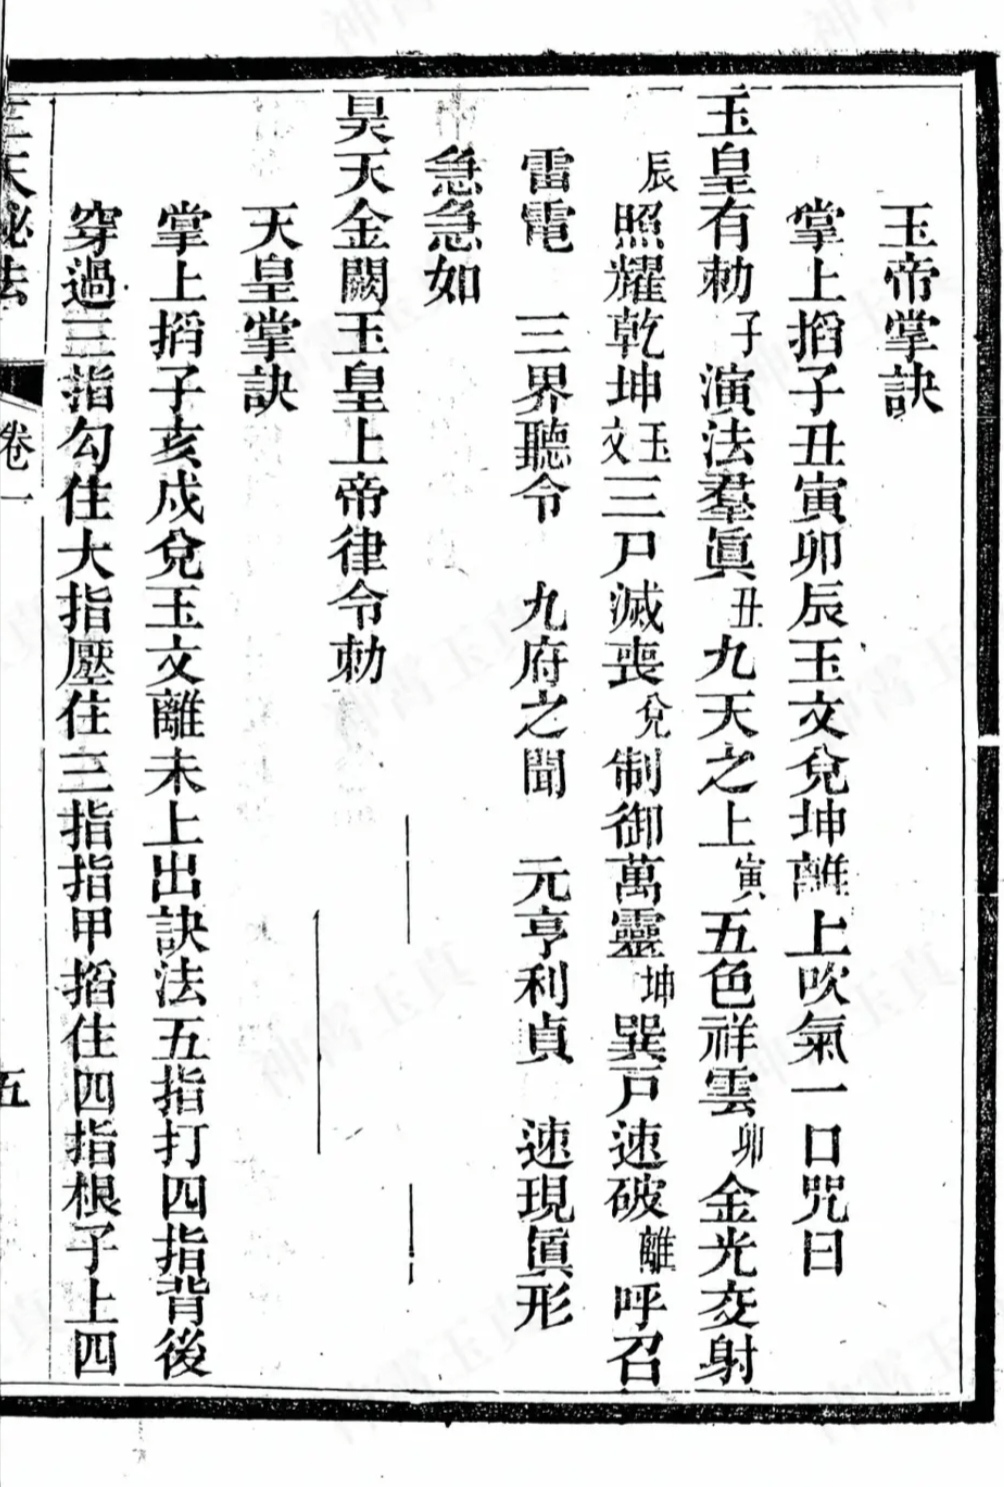 玉帝掌訣
掌上搯子丑寅卯辰玉文兌坤離上吹氣一口咒曰
玉皇有勅子演法羣眞丑九天之上寅五色祥雲卯金光交射
辰照耀乾坤玉文三尸滅喪兌制御萬靈坤巽戸速破離呼召
雷電 三界聽令 九府之聞 元亨利貞 速現眞形
急急如
昊天金闕玉皇上帝律令勅
天皇掌訣
掌上搯子亥戍兌玉文離未上出訣法五指打四指背後
穿過三指勾住大指壓住三指指甲搯住四指根子上四
三天秘法 卷一 五
神霄玉真